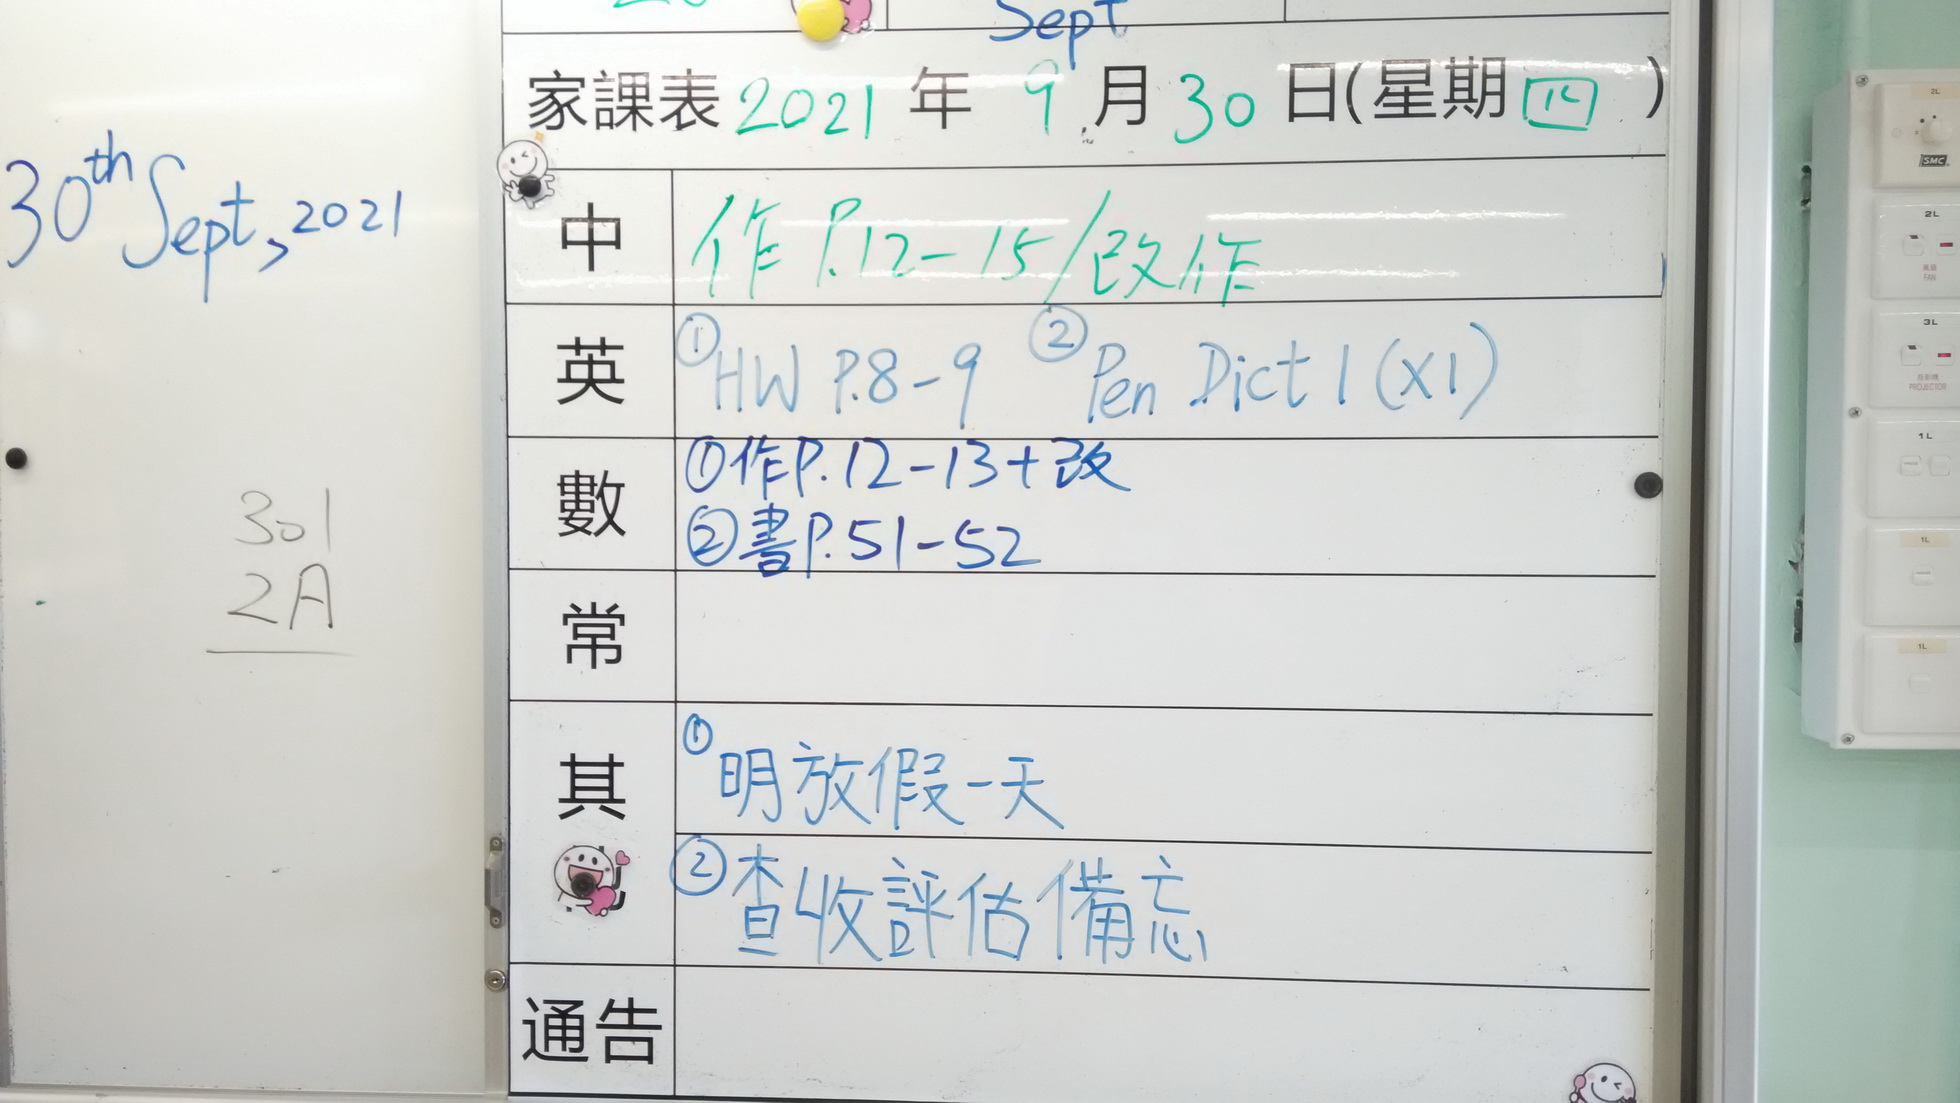 Sept
家課表 2021 年 9 月 30 日(星期四)
30th Sept, 2021
中 作 P.12-15/改作
英 ①HW P.8-9 ②Pen Dict 1 (x1)
數 ①作P.12-13+改
②書P.51-52
301
2A
常
其
①明放假一天
②查收評估備忘
通告
2L
SMC
2L
FAN
3L
PROJECTOR
1L
1L
1L